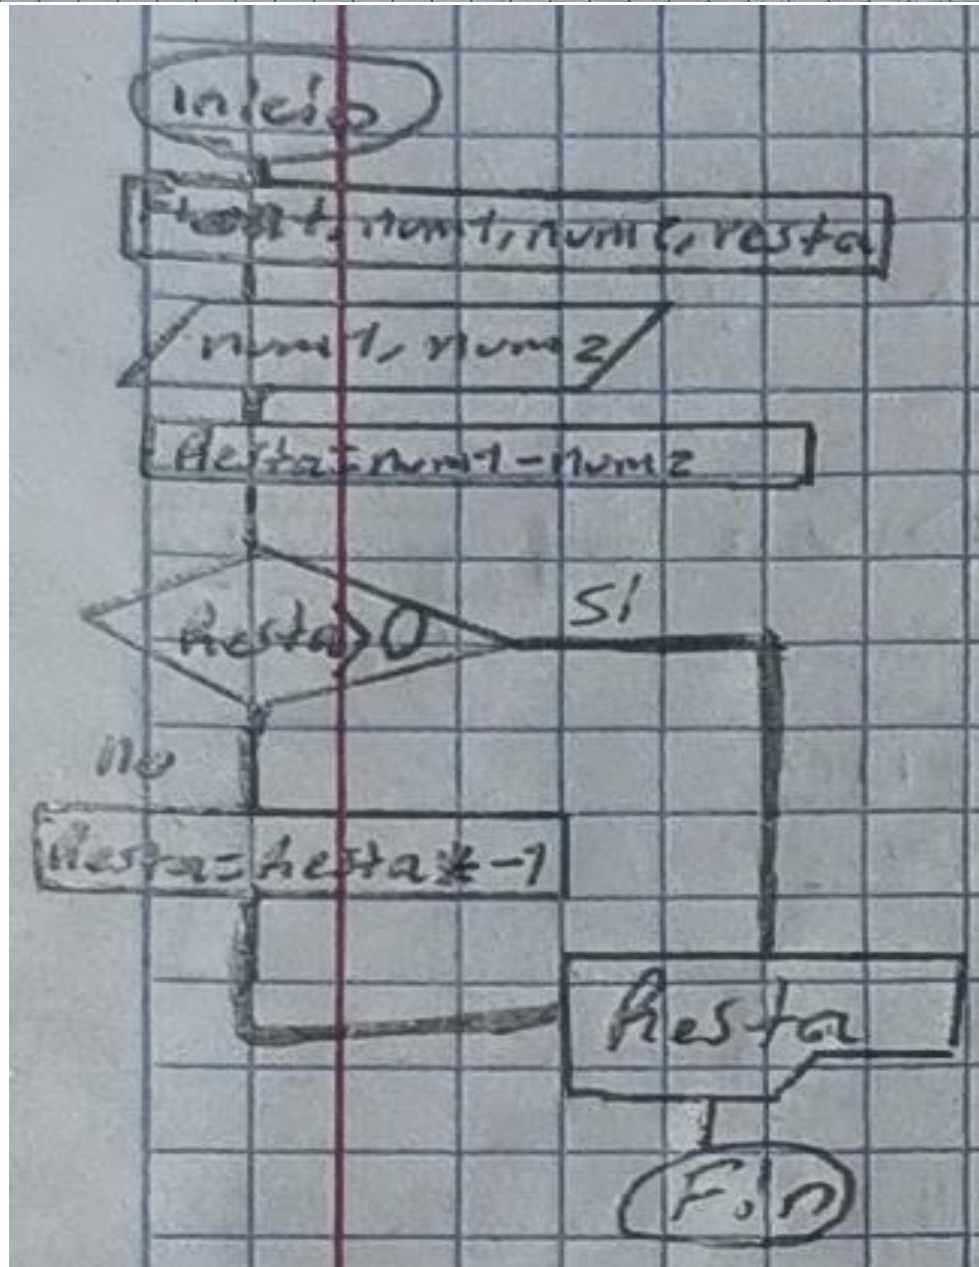 Inicio
Float, num1, num2, resta
num1, num2
Resta=num1-num2
Resta>0
Si
no
Resta=Resta*-1
Resta
Fin